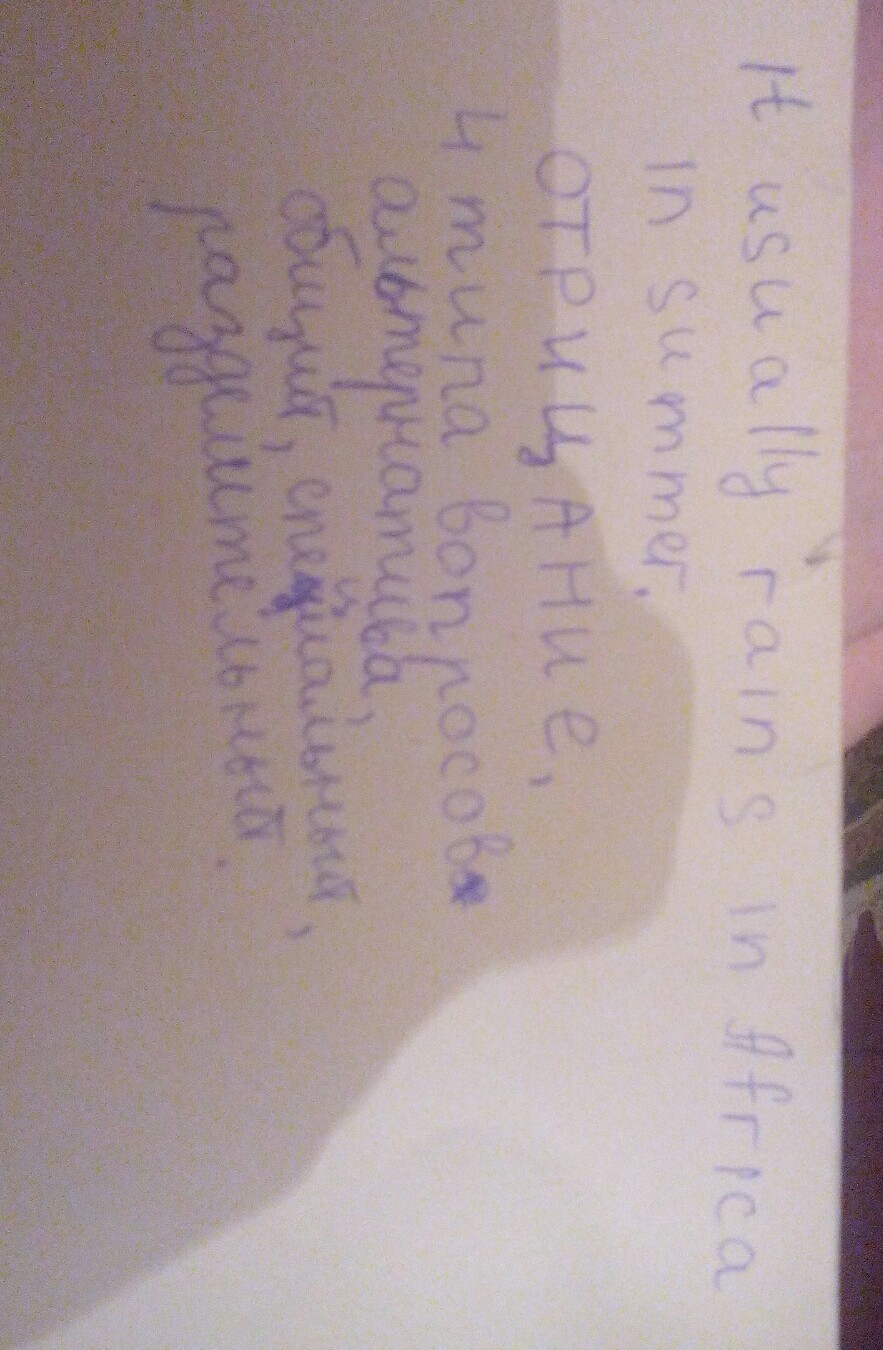 It usually rains in Africa
in summer.
ОТРИЦАНИЕ,
4 типа вопросов
альтернатива,
общий, специальный,
разделительный.